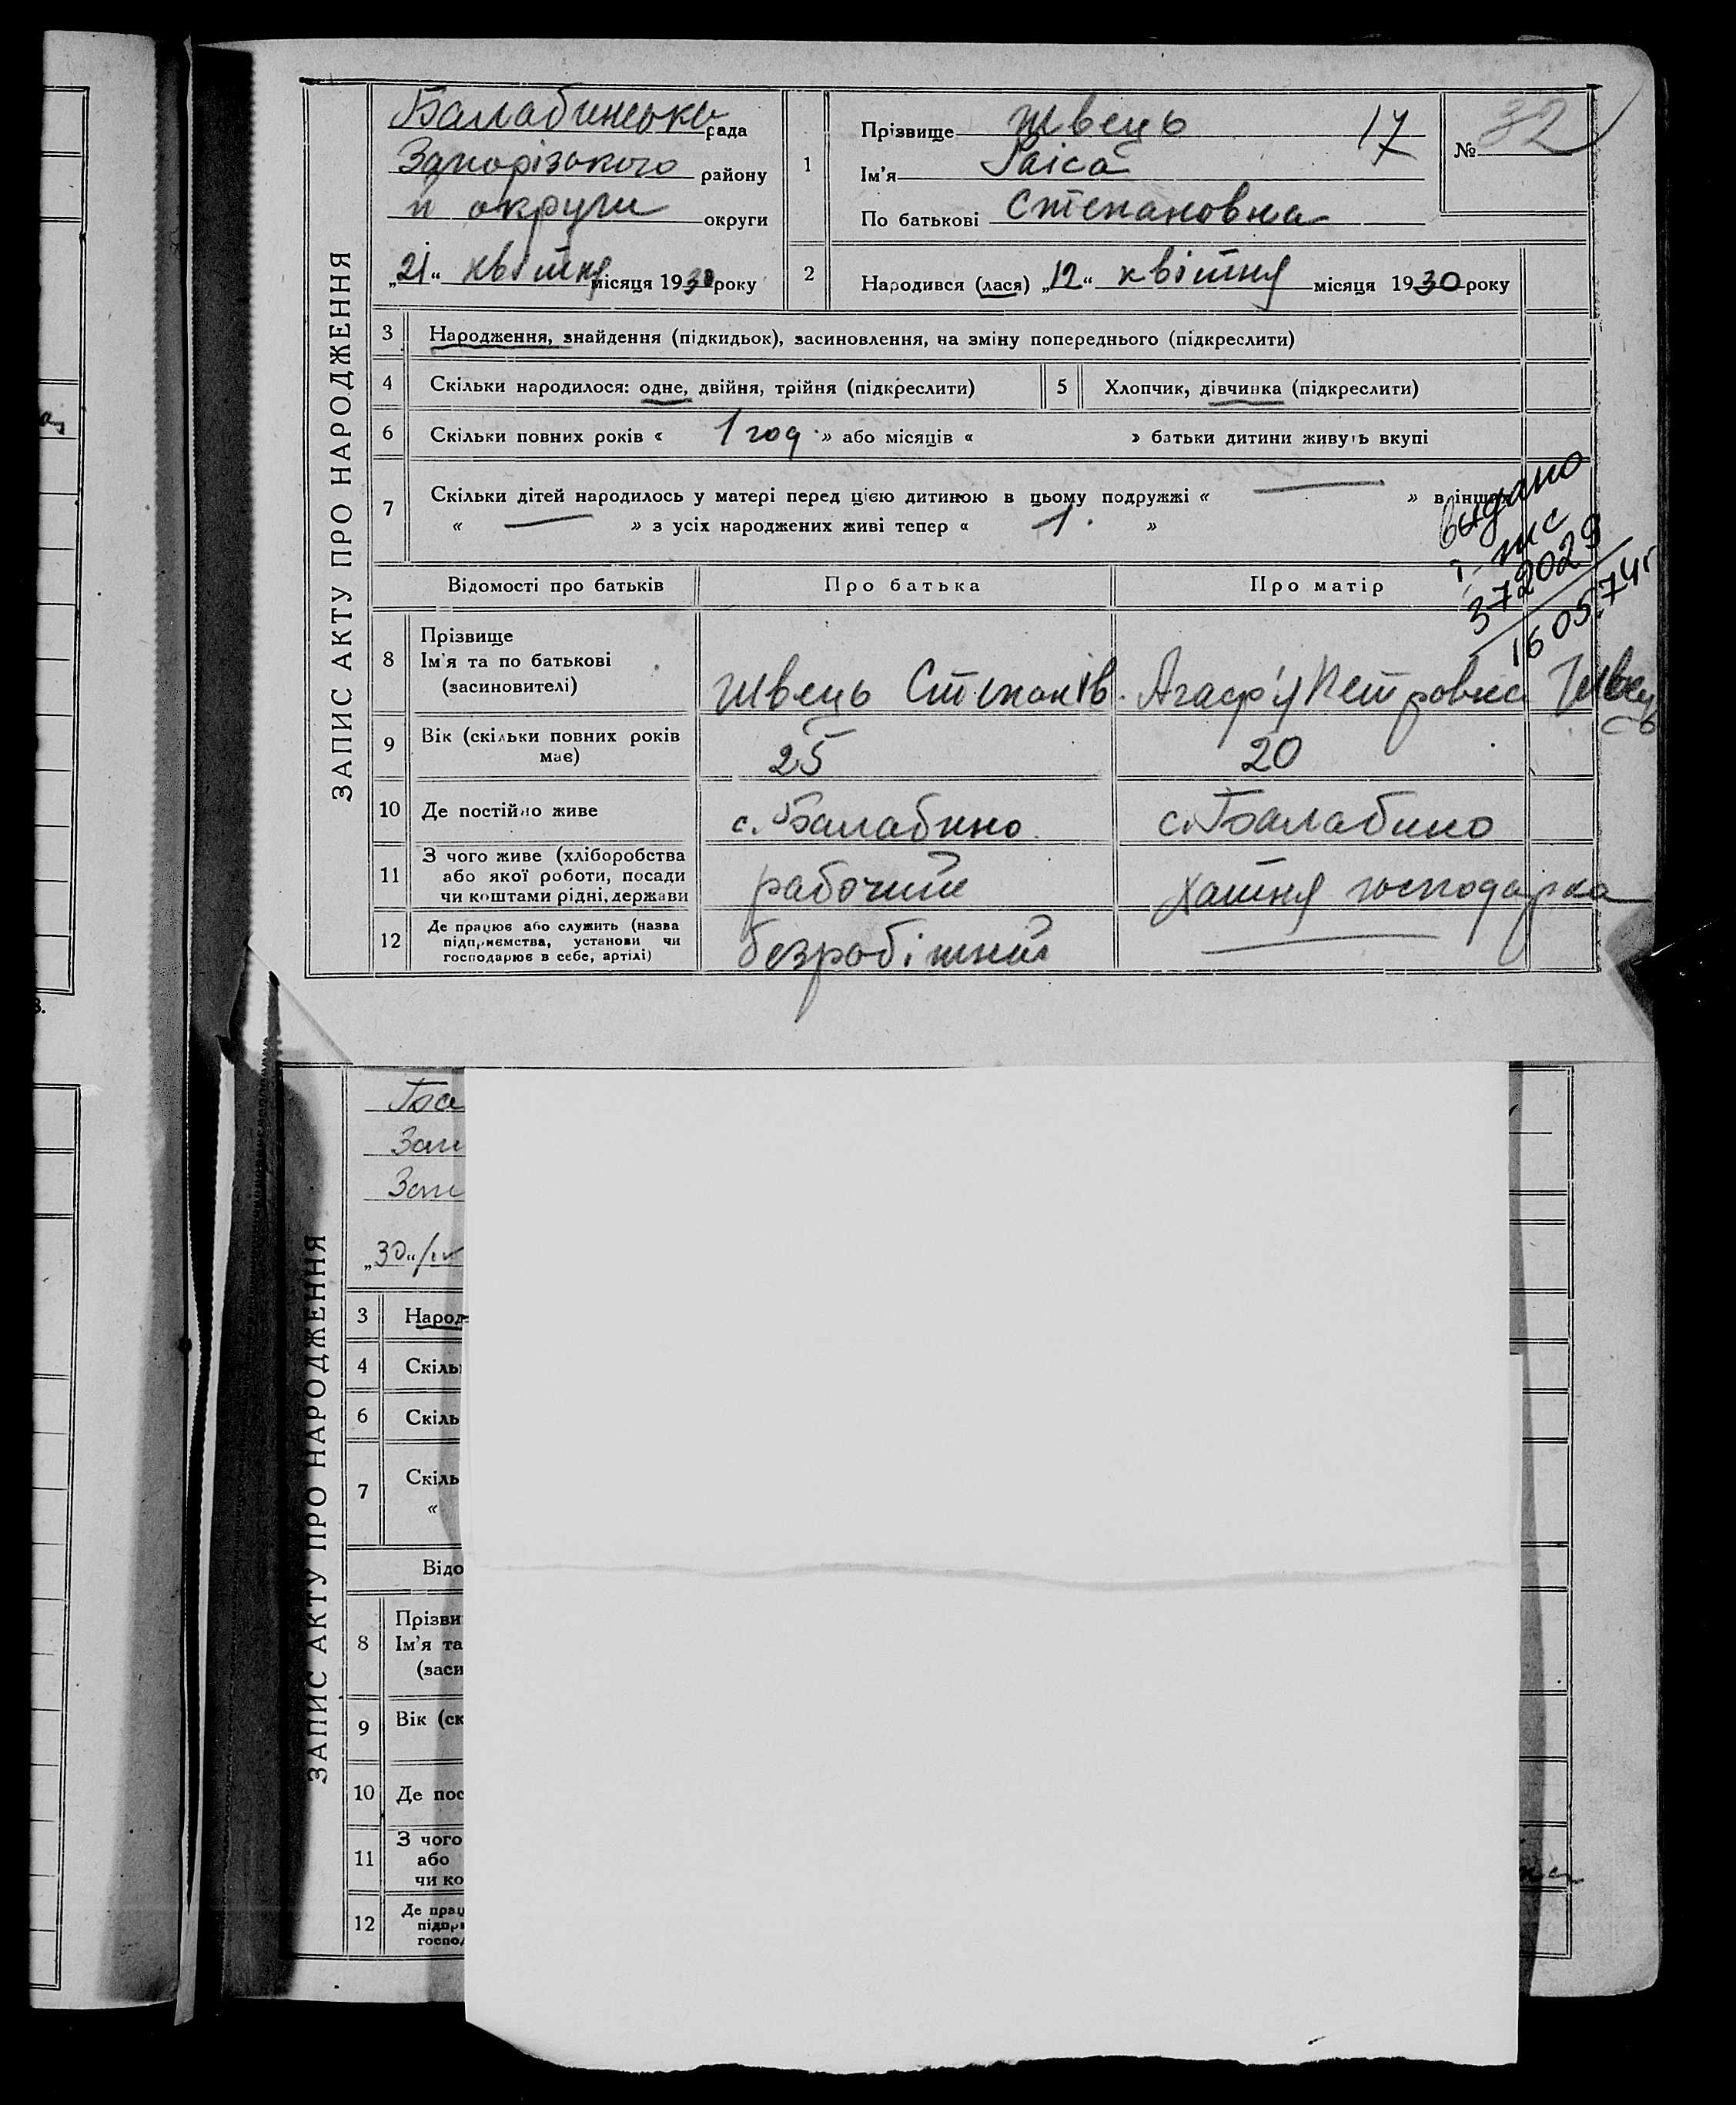 ЗАПИС АКТУ ПРО НАРОДЖЕННЯ
Балабинська рада
Запорізького району
п округи округи
„21“ квітня місяця 1930 року
1
Прізвище Швець 17
Ім'я Раіса
По батькові Степановна
№ 32
2 Народився (лася) „12“ квітня місяця 1930 року
3 Народження, знайдення (підкидьок), засиновлення, на зміну попереднього (підкреслити)
4 Скільки народилося: одне, двійня, трійня (підкреслити) 5 Хлопчик, дівчинка (підкреслити)
6 Скільки повних років « 1 год » або місяців « » батьки дитини живуть вкупі
7 Скільки дітей народилось у матері перед цією дитиною в цьому подружжі « — » в інших
« — » з усіх народжених живі тепер « 1. »
видано
372029
16 05.74г
Відомості про батьків Про батька Про матір
8 Прізвище
Ім'я та по батькові
(засиновителі)
Швець Степан Ів. Агаф'я Петровна Швець
9 Вік (скільки повних років
має)
25 20
10 Де постійно живе с. Балабино с. Балабино
11 З чого живе (хліборобства
або якої роботи, посади
чи коштами рідні, держави
рабочий хатня господарка
12 Де працює або служить (назва
підприємства, установи чи
господарює в себе, артілі)
безробітний —
ЗАПИС АКТУ ПРО НАРОДЖЕННЯ
Ба
Зап
Зап
„30“/IV
3 Народ
4 Скіль
6 Скіль
7 Скіль
«
Відо
8 Прізви
Ім'я та
(заси
9 Вік (ск
10 Де пос
11 З чого
або
чи ко
12 Де прац
підпр
госпо